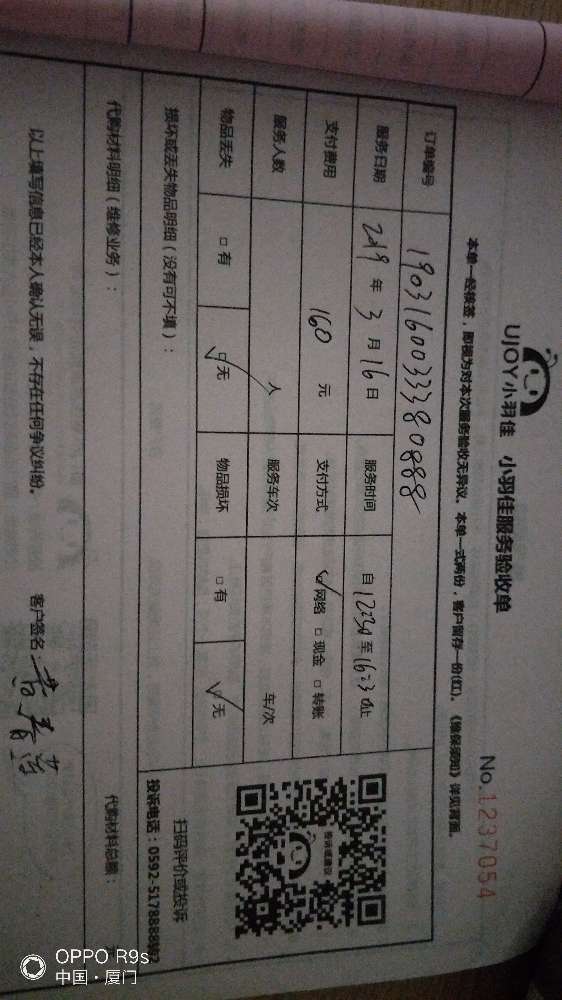 UJOY小羽佳 小羽佳服务验收单
No.1237054
本单一经核签，即视为对本次服务验收无异议。本单一式两份，客户留存一份(红)。《维保须知》详见背面。
订单编号 1903160033380888
服务日期 2019 年 3 月 16 日 服务时间 自 12:30 至 16:30 止
支付费用 160 元 支付方式 网络 现金 转账
服务人数 人 服务车次 车/次
物品丢失 有 无 物品损坏 有 无
损坏或丢失物品明细（没有可不填）：
扫码评价或投诉
投诉电话：0592-5178888
代购材料明细（维修业务）：
代购材料总额：
以上填写信息已经本人确认无误，不存在任何争议纠纷。
客户签名：
OPPO R9s
中国·厦门